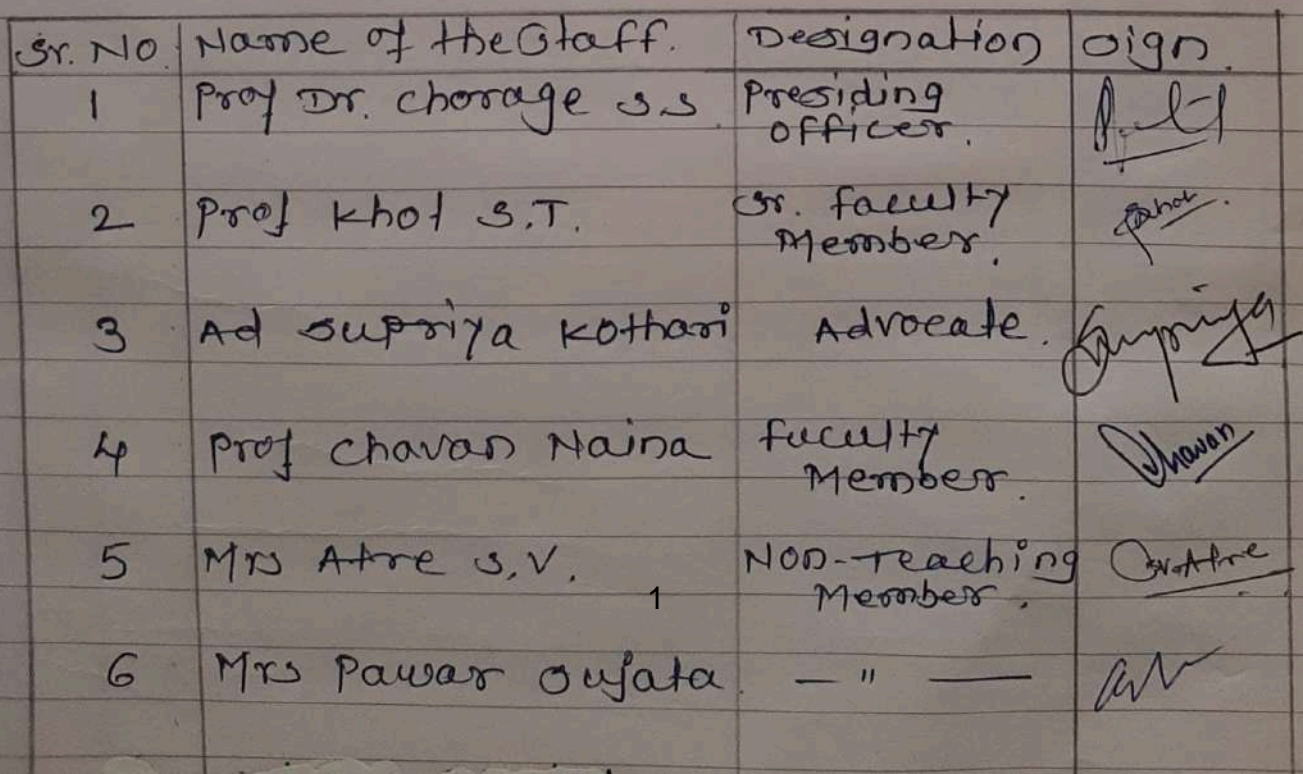 Sr. No. Name of the Staff. Designation Sign.
1 Prof Dr. Chorage S S Presiding
Officer.
2 Prof Khot S.T. Sr. faculty
Member.
3 Ad Supriya Kothari Advocate. Supriya
4 Prof Chavan Naina faculty
Member. Chavan
5 Mrs Atre S.V. Non-Teaching SVAtre
Member.
1
6 Mrs Pawar Sujata. — " —